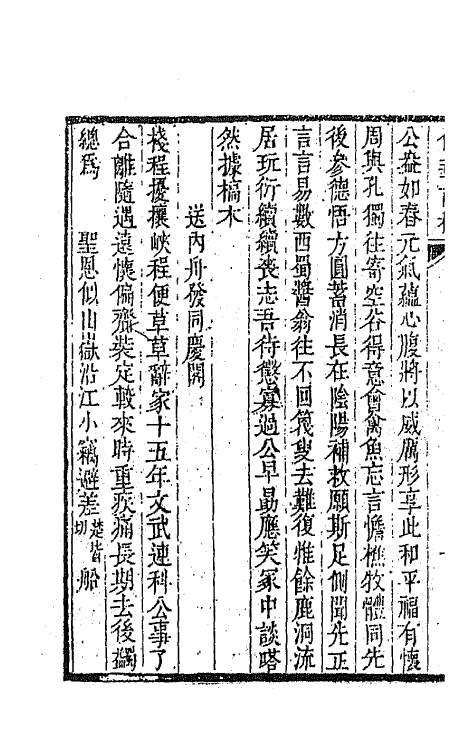 公盎如春元氣蘊心腹將以威厲形享此和平福有懷
周與孔獨往寄空谷得意會禽魚忘言憺樵牧體同先
後參德悟方圓蓄消長在陰陽補救願斯足側聞先正
言言易數西蜀醬翁往不回篾叟去難復惟餘鹿洞流
居玩衍續續喪志吾待懲寡過公早勗應笑冢中談嗒
然據槁木
送內舟發同慶閣
棧程擾攘峽程便草草辭家十五年文武連科公事了
合離隨遇遠懷偏裝定較來時重疾痛長期去後蠲
總爲 聖恩似山嶽沿江小竊避差船 楚皆切